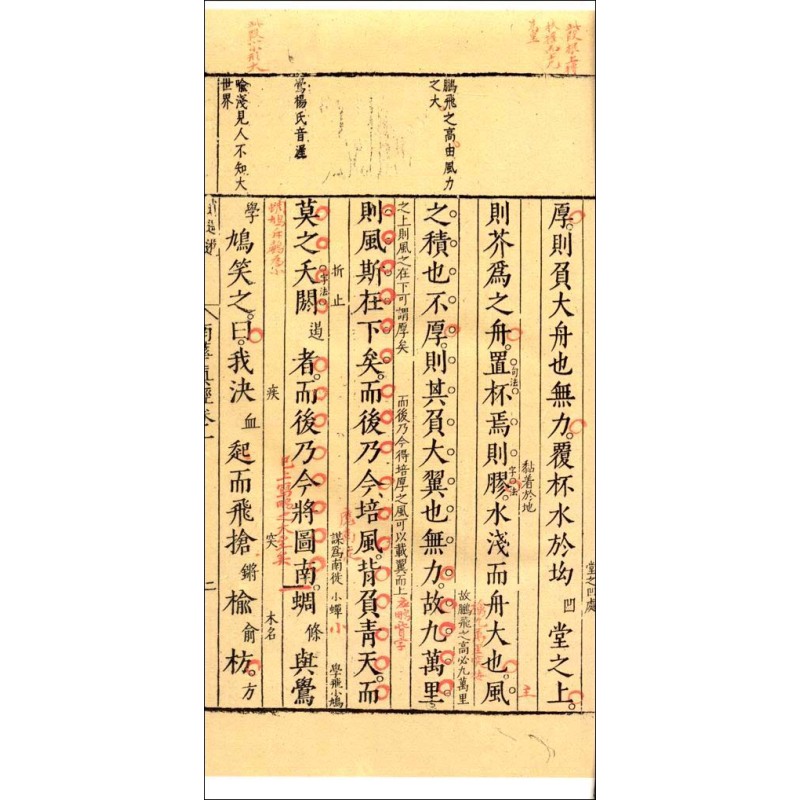 鵬飛之高由風力
之大
鶯楊氏音渥
喻淺見人不知大
世界
堂之凹處
厚則負大舟也無力覆杯水於坳凹堂之上
黏着於地
則芥爲之舟置杯焉則膠水淺而舟大也風
句法
字法
故鵬飛之高必九萬里
之積也不厚則其負大翼也無力故九萬里
之上則風之在下可謂厚矣
而後乃今得培厚之風可以載翼而上
則風斯在下矣而後乃今培風背負青天而
折止
謀爲南徙
小蟬
學飛小鳩
莫之夭閼遏者而後乃今將圖南蜩條與鷽
字法
疾
突
木名
學鳩笑之曰我決血起而飛搶鏘榆俞枋方
南華眞經卷一
二